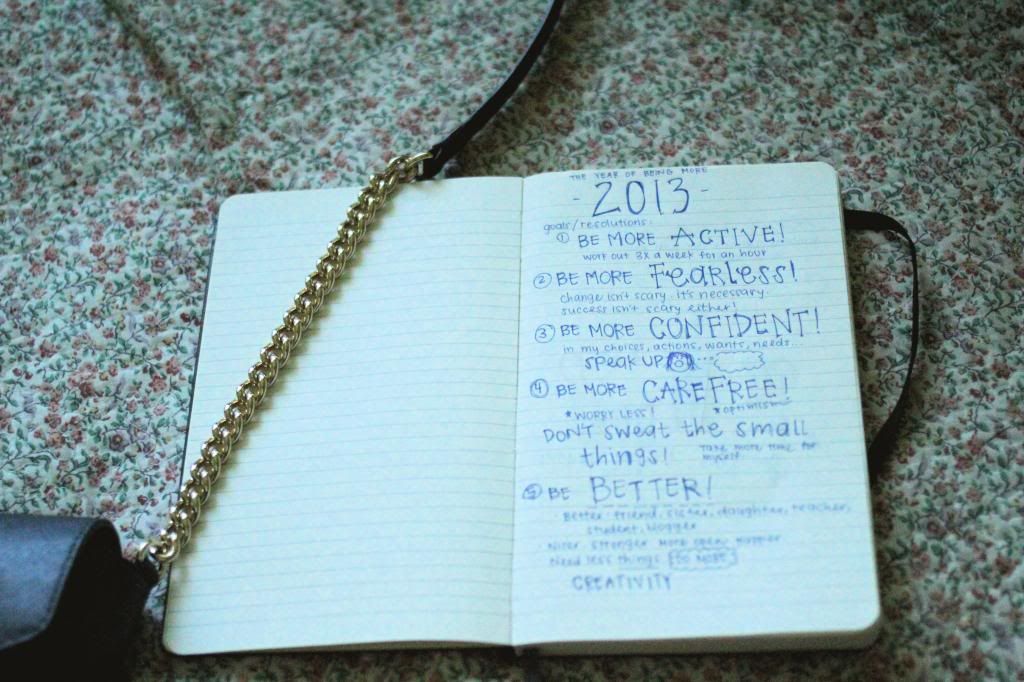 THE YEAR OF BEING MORE
- 2013 -
goals/resolutions:
① BE MORE ACTIVE!
work out 3x a week for an hour
② BE MORE FearLess!
change isn't scary. it's necessary.
success isn't scary either!
③ BE MORE CONFIDENT!
in my choices, actions, wants, needs...
speak UP ...
④ BE MORE CAREFREE!
*WORRY LESS! *optimism
DON'T sweat the small
things! Take more time for
myself
⑤ BE BETTER!
· Better friend, sister, daughter, teacher,
student, blogger
· Nicer Stronger More open Happier
Need less things. DO MORE!
CREATIVITY